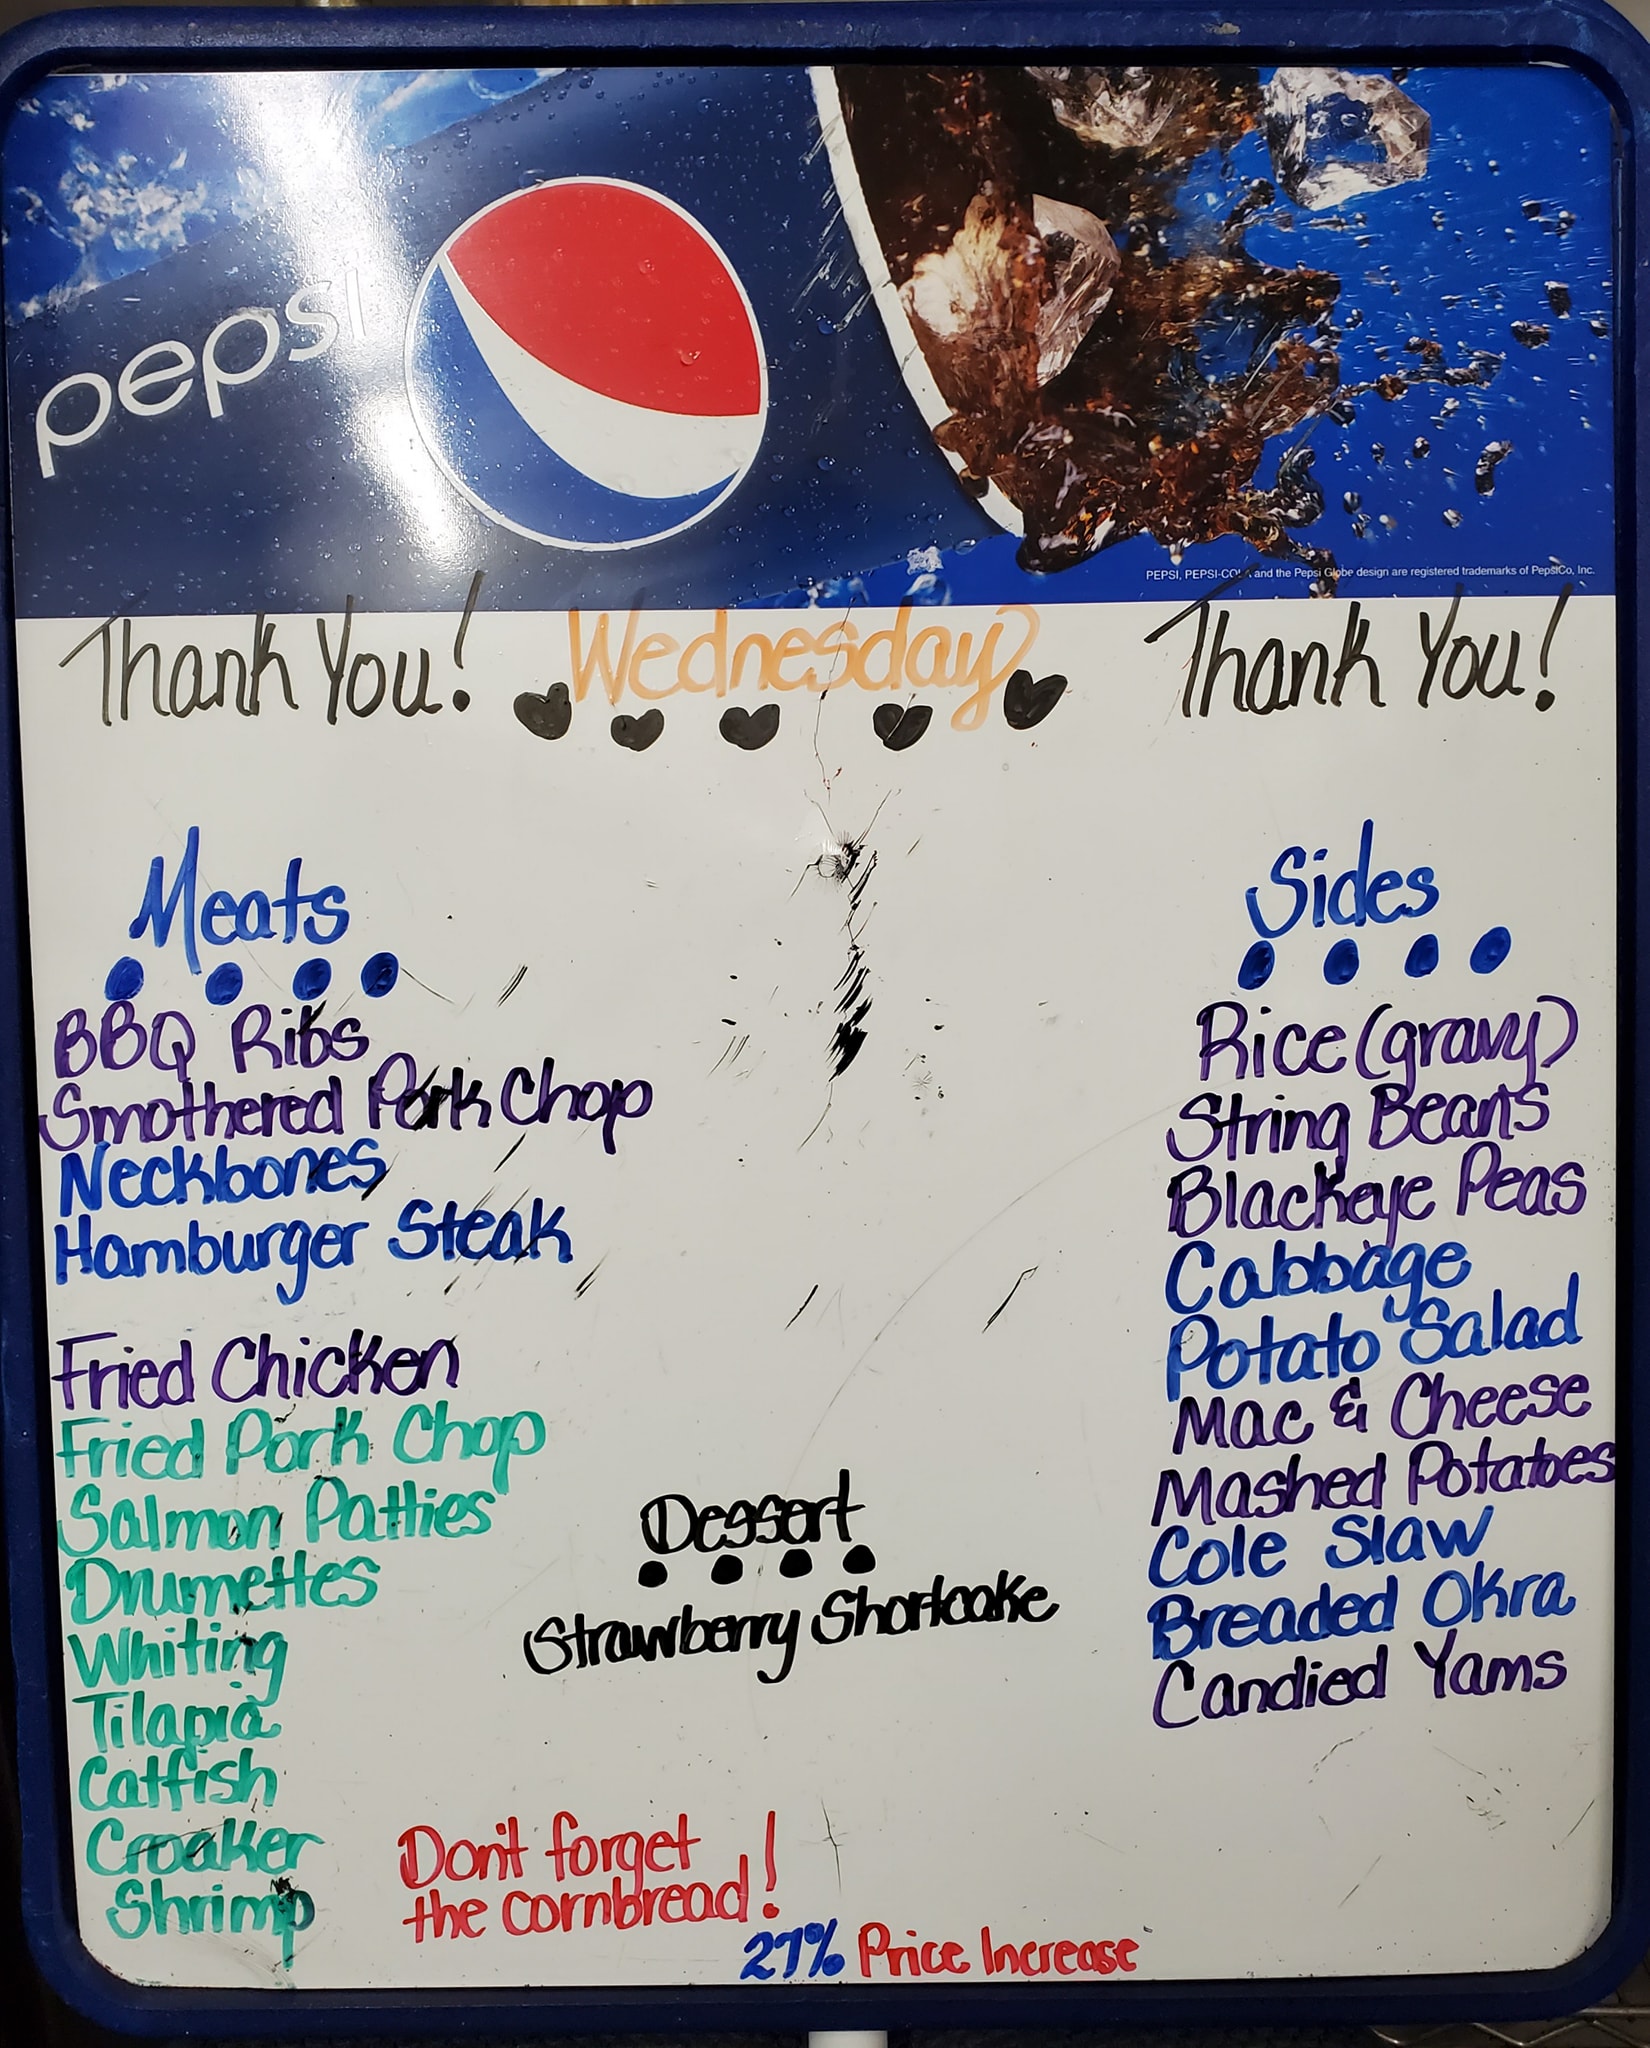 pepsi
PEPSI, PEPSI-COLA and the Pepsi Globe design are registered trademarks of PepsiCo, Inc.
Thank You!
Wednesday
Thank You!
Meats
BBQ Ribs
Smothered Pork Chop
Neckbones
Hamburger Steak
Fried Chicken
Fried Pork Chop
Salmon Patties
Drumettes
Whiting
Tilapia
Catfish
Croaker
Shrimp
Dessert
Strawberry Shortcake
Don't forget
the cornbread!
27% Price Increase
Sides
Rice (gravy)
String Beans
Blackeye Peas
Cabbage
Potato Salad
Mac & Cheese
Mashed Potatoes
Cole Slaw
Breaded Okra
Candied Yams